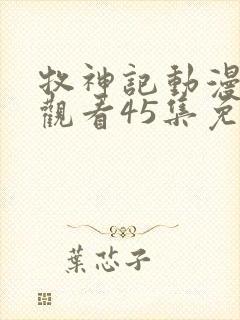 牧神記動漫
觀看45集免
葉芯子